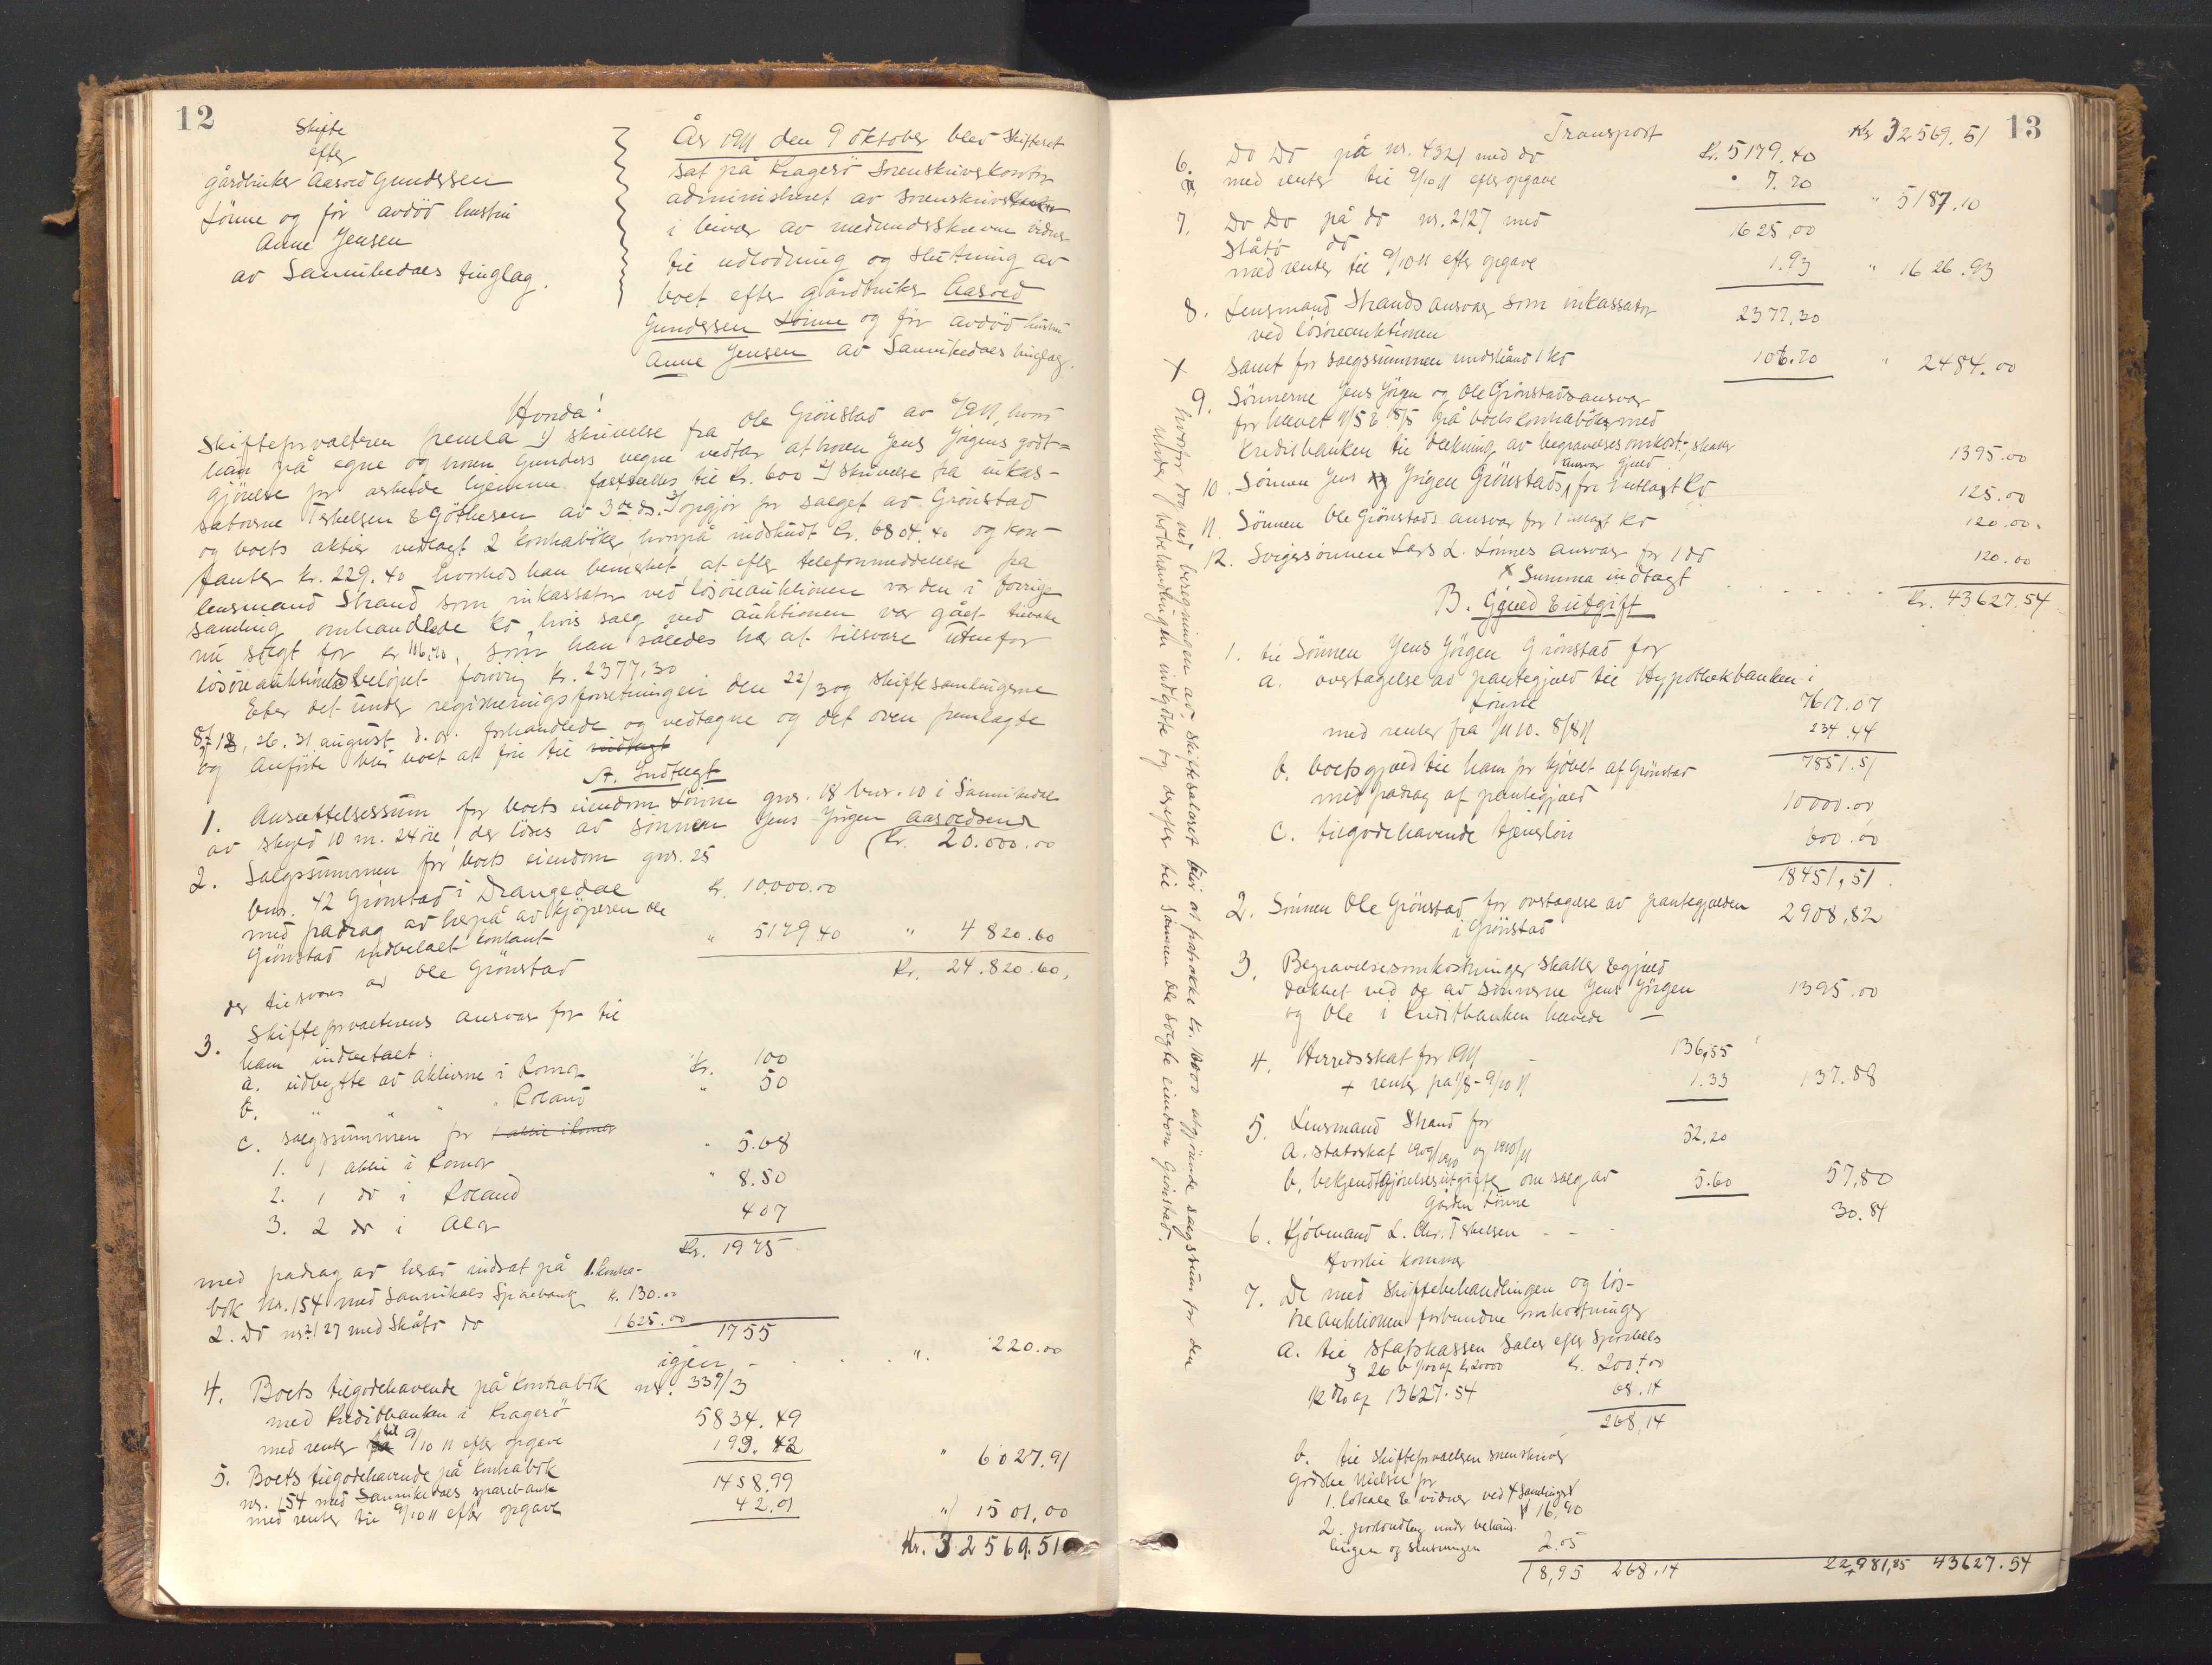 12
Skifte
efter
gårdbruker Aasold Gundersen
Lönne og før avdöd hustru
Anne Jensen
av Sannikedals tinglag.
År 1911 den 9 oktober blev skifteret
sat på Kragerö Sorenskriverkontor
administreret av sorenskriveren
i biver av medundersskrevne vidner
til udlodning og slutning av
boet efter gårdbruker Aasold
Gundersen Lönne og før avdöd hustru
Anne Jensen av Sannikedals tinglag.
Hvorda!
Skifteforvalteren fremla 1) skrivelse fra Ole Grönstad av 9/9 11, hvori
han på egne og broren Gunders vegne vedtar at broren Jens Jörgens godt=
gjörelse for arbeide hjemme fastsættes til kr. 600 2) skrivelse fra inkas-
satorene Terkelsen & Göthesen av 3de ds. 3) opgjör for salget av Grönstad
og boets aktier vedlagt 2 kontraböker, hvorpå indskudt kr. 6804.40 og kon-
tanter kr. 229.40 hvorhos han bemerket at efter telefonmeddelelse fra
lensmand Strand som inkassator ved lösöreauktionen var den i forrige
samling omhandlede ko, hvis salg ved auktionen var gået tilbake
nu solgt for kr 106,70, som han således har at tilsvare utenfor
lösöreauktionsbelöpet forövrig kr. 2377,30
Efter det under registreringsforretningen den 22/3 og skiftesamlingerne
8, 18, 26. 31 august d. år. forhandlede og vedtagne og det oven fremlagte
og anförte blir boet at före til indtægt
A. Indtægt
1. Ansættelsessum for boets eiendom Lönne gnr. 18 bnr. 10 i Sannikedal
av skyld 10 m. 24 öre, der löses av sönnen Jens Jörgen Aasoldsen
Kr. 20.000.00
2. Salgssummen for boets eiendom gnr. 25
bnr. 42 Grönstad i Drangedal kr. 10.000.00
med fradrag av herpå av kjöperen Ole
Grönstad indbetalt kontant " 5179.40 " 4 820.60
der tilsvares av Ole Grönstad Kr. 24.820.60.
3. Skifteforvalterens ansvar for til
ham indbetalt:
a. udbytte av aktierne i Roma Kr. 100
b. " " " Roland " 50
c. salgssummen for 1 aktie i Roma
1. 1 aktie i Roma " 568
2. 1 do i Roland " 850
3. 2 do i Alea 407
Kr. 1975
med fradrag av herav indsat på 1. kontra-
bok nr. 154 med Sannikedals Sparebank kr. 130.00
2. Do nr. 2127 med Skåtö do 1625.00 1755
igjen - . . . " 220.00
4. Boets tilgodehavende på kontrabok nr. 339/3
med Kreditbanken i Kragerö 5834.49
med renter til 9/10 11 efter opgave 193.42 " 6027.91
5. Boets tilgodehavende på kontrabok
nr. 154 med Sannikedals sparebank 1458.99
med renter til 9/10 11 efter opgave 42.01 " 1501,00
Kr. 32569.51
13
Transport Kr 32569.51
6. Do Do på nr. 4321 med do Kr. 5179.40
med renter til 9/10 11 efter opgave " 7.70 " 5187.10
7. Do Do på do nr. 2127 med
Skåtö do 1625,00
med renter til 9/10 11 efter opgave 1.93 " 1626.93
8. Lensmand Strands ansvar som inkassator
ved lösöreauktionen 2377,30
X samt for salgssummen underhånd 1 ko 106.70 " 2484.00
9. Sönnerne Jens Jörgen og Ole Grönstads ansvar
for hævet 11/5 & 18/5 på boets kontraböker med
Kreditbanken til dækning av begravelsesomkost. skatter
gjæld 1395.00
10. Sönnen Jens Jörgen Grönstads ansvar for 1 utlagt ko 125.00
11. Sönnen Ole Grönstads ansvar for 1 utlagt ko 120.00.
12. Svigersönnen Lars L. Lönnes ansvar for 1 do 120.00
X Summa indtægt . . . . . Kr. 43627.54
B. Gjæld & utgift
1. til Sönnen Jens Jörgen Grönstad for
a. overtagelse av pantegjæld til Hypothekbanken i
Lönne 7617.07
med renter fra 1/11 10 - 8/8 11 234.44
7851.51
b. boets gjæld til ham for kjöbet af Grönstad
med fradrag af pantegjæld 10000.00
c. tilgodehavende tjenerlön 600.00
18451,51
2. Sönnen Ole Grönstad for overtagelse av pantegjælden
i Grönstad 2908,82
3. Begravelsesomkostninger skatter & gjæld
dækket ved de av sönnerne Jens Jörgen
og Ole i Kreditbanken hævede - 1395.00
4. Herredsskat for 1911 - 136,55
+ renter fra 1/8 - 9/10 11 1.33 137.88
5. Lensmand Strand for
a. statsskat 1909/1910 og 1910/11 52.20
b. bekjendtgjörelsesutgifter om salg av
gården Lönne 5.60 57,80
6. Kjöbmand L. Chr. Terkelsen - - 30.84
Hvortil kommer
7. De med skiftebehandlingen og lös-
öre auktionen forbundne omkostninger
a. til statskassen Saler efter Sportells
§ 26 b 1/100 af kr 20000 kr. 200.00
1/2 % af 13627.54 68.14
268,14
b. til skifteforvalteren sorenskriver
Grödske Nielsen for
1. lokale & vidner ved 4 samlinger
16,90
2. portoudlæg under behand-
lingen og slutningen 2.05
18,95 268.14 22981,85 43627.54
hvorfor dog ved beregningen av skiftesaleret blir at fratrække kr. 10000 utgjörende salgssum for den
under bobehandlingen indkjöpte og derefter til sönnen Ole solgte eiendom Grönstad.